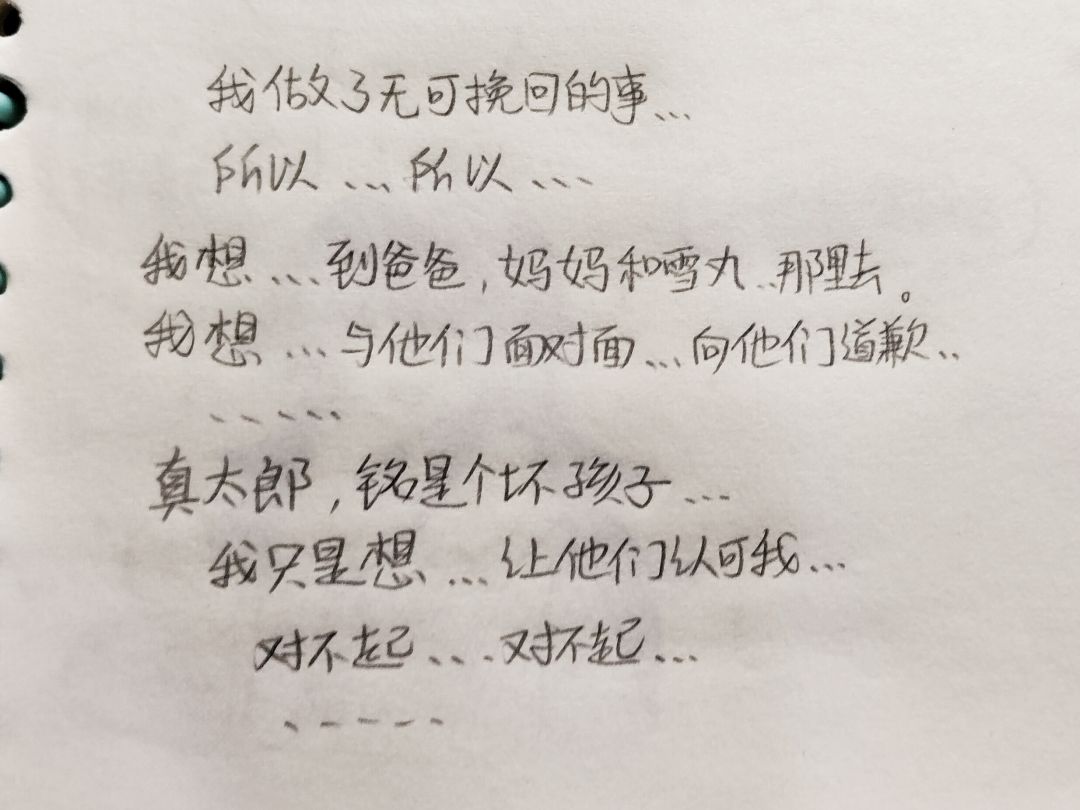 我做了无可挽回的事...
所以...所以...
我想...到爸爸,妈妈和雪丸..那里去。
我想...与他们面对面...向他们道歉..
.....
真太郎,铭是个坏孩子...
我只是想...让他们认可我...
对不起...对不起...
.....